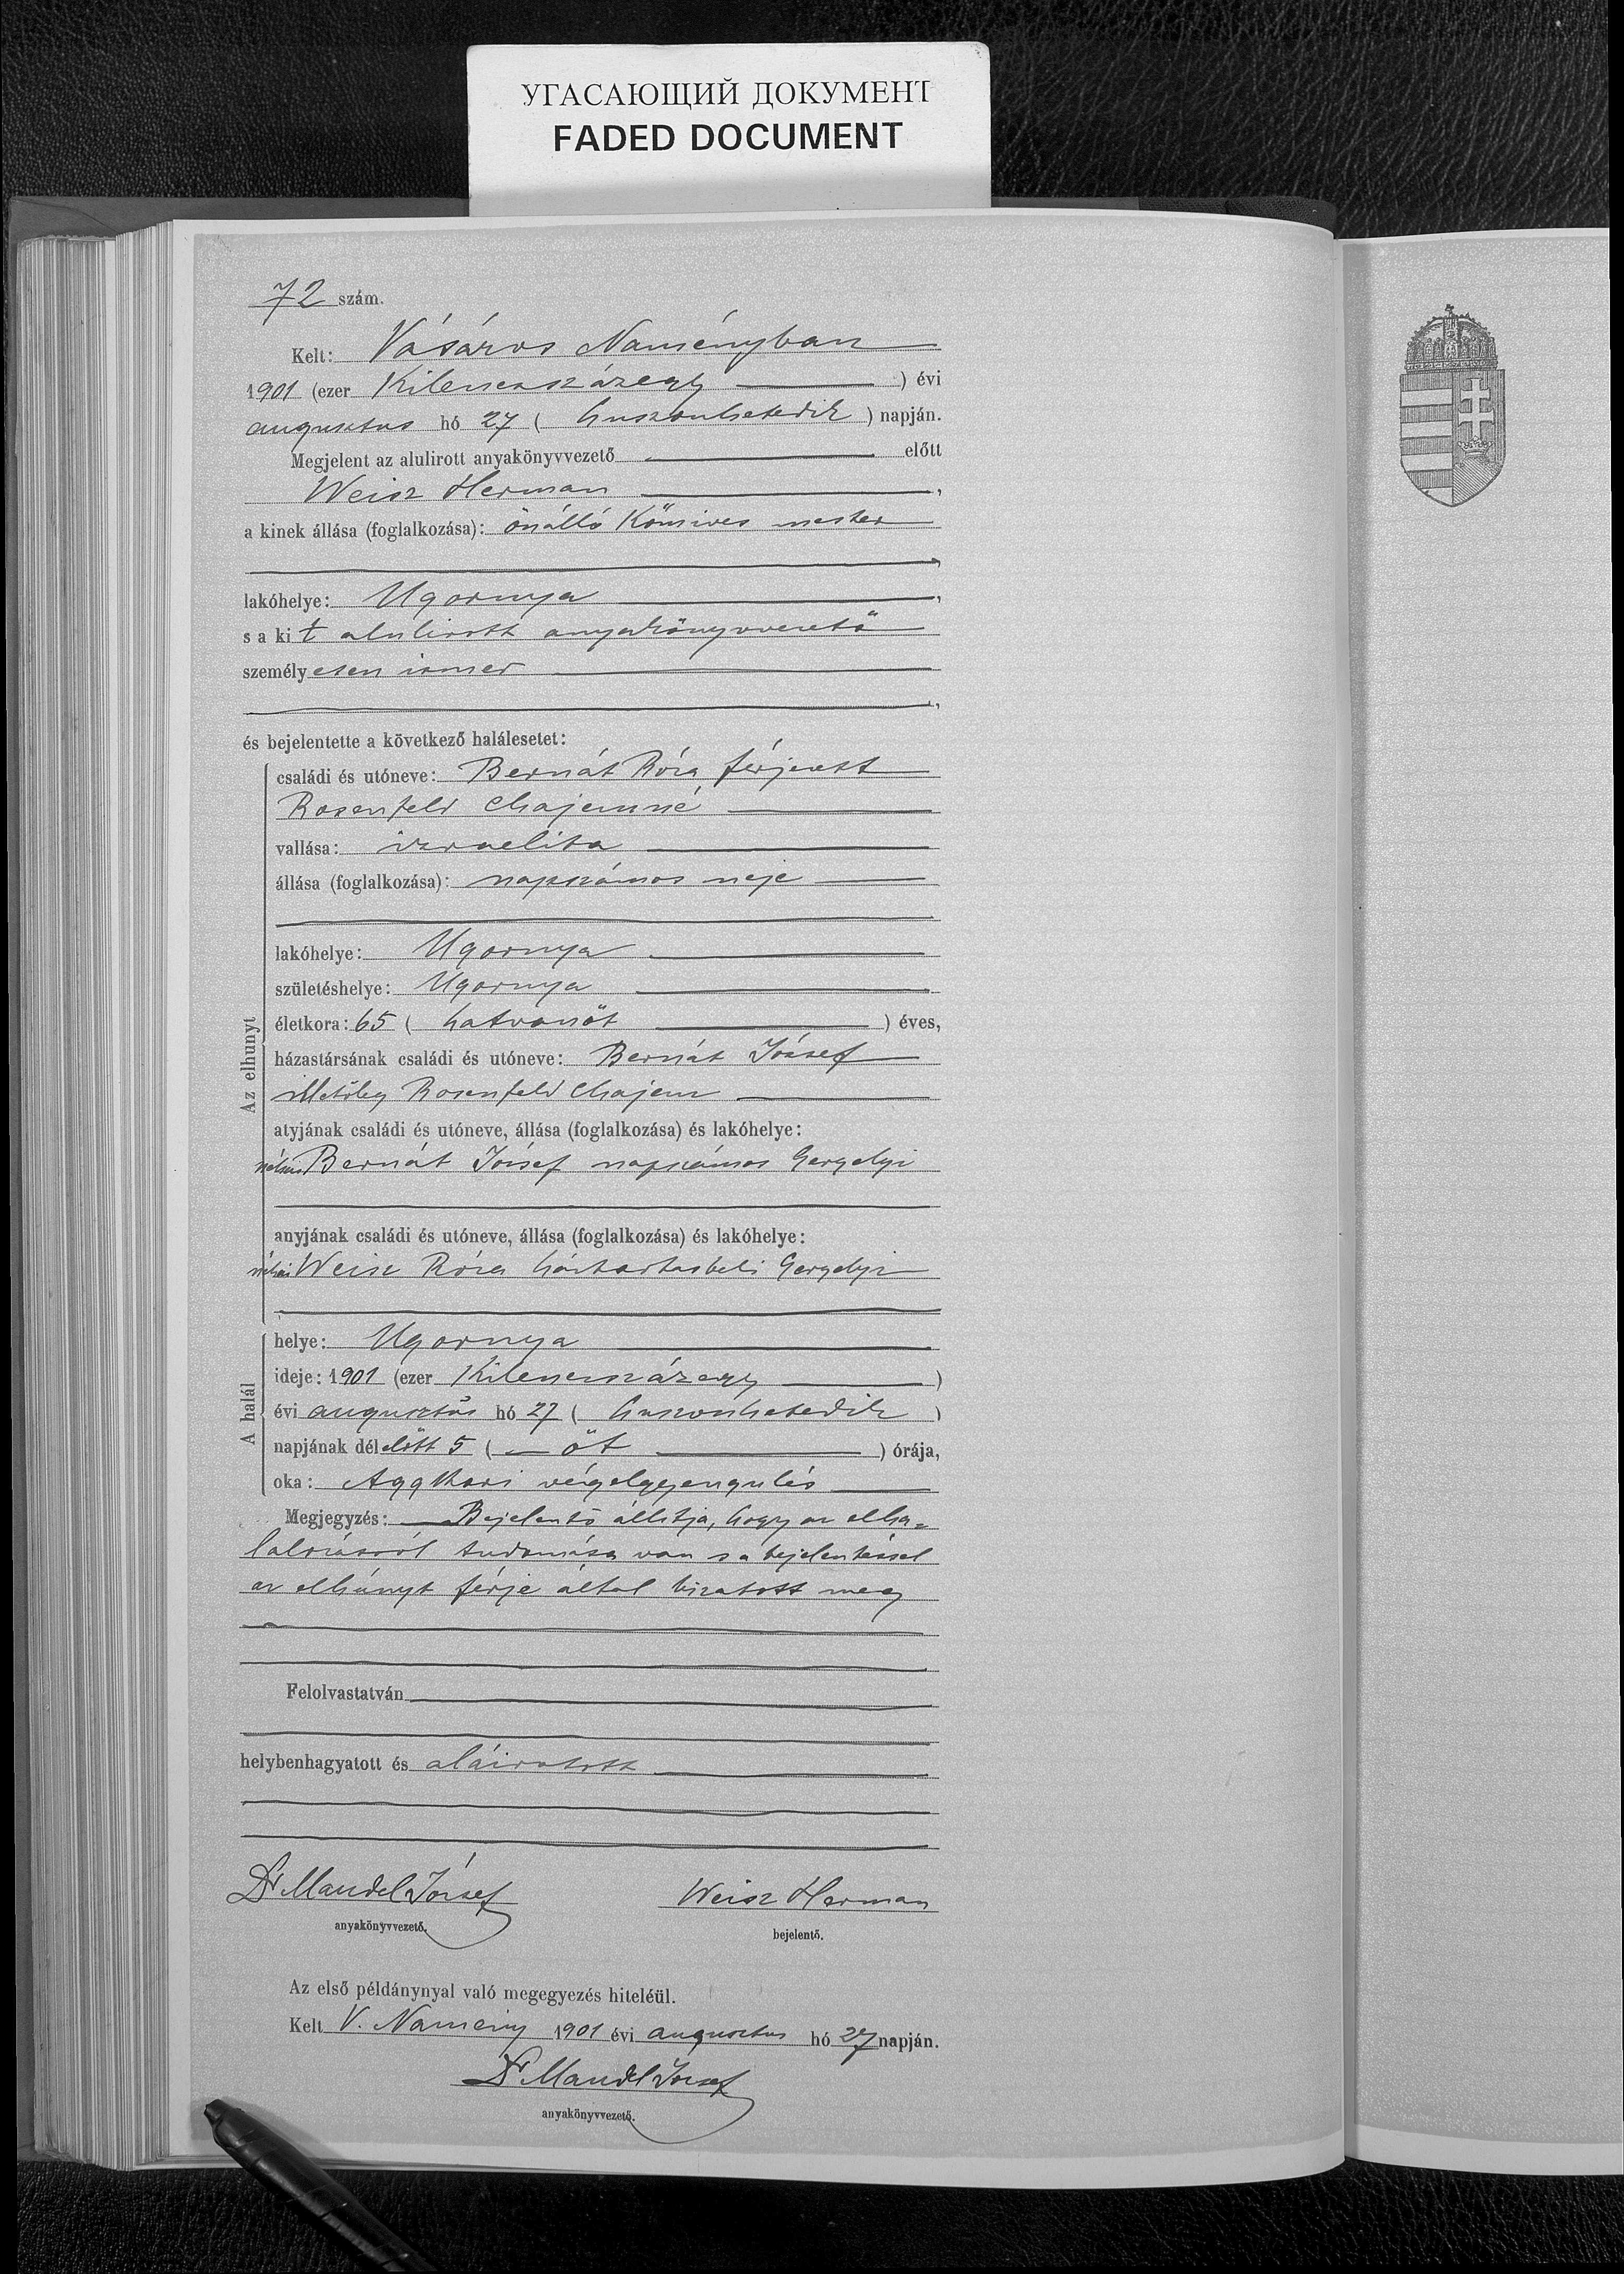 УГАСАЮЩИЙ ДОКУМЕНТ
FADED DOCUMENT
72 szám.
Kelt: Vásáros Naményban
1901 (ezer Kilenczszázegy ) évi
augusztus hó 27 ( huszonhetedik ) napján.
Megjelent az alulirott anyakönyvvezető előtt
Weisz Herman,
a kinek állása (foglalkozása): önálló Kőmives mester
,
lakóhelye: Ugornya,
s a kit alulirott anyakönyvvezető
személyesen ismer
,
és bejelentette a következő halálesetet:
Az elhunyt
családi és utóneve: Bernát Róza férjezett
Rosenfeld Chajemné
vallása: izraelita
állása (foglalkozása): napszámos neje
lakóhelye: Ugornya
születéshelye: Ugornya
életkora: 65 ( hatvanöt ) éves,
házastársának családi és utóneve: Bernát József
illetőleg Rosenfeld Chajem
atyjának családi és utóneve, állása (foglalkozása) és lakóhelye:
néhai Bernát József napszámos Gergelyi
anyjának családi és utóneve, állása (foglalkozása) és lakóhelye:
néhai Weisz Róza háztartásbeli Gergelyi
A halál
helye: Ugornya
ideje: 1901 (ezer Kilenczszázegy )
évi augusztus hó 27 ( huszonhetedik )
napjának délelőtt 5 ( öt ) órája,
oka: Aggkori végelgyengülés
Megjegyzés: Bejelentő állitja, hogy az elha=
lalozásról tudomása van s a bejelentéssel
az elhúnyt férje által bizatott meg
Felolvastatván
helybenhagyatott és aláiratott
Dr Mandel József
Weisz Herman
anyakönyvvezető.
bejelentő.
Az első példánynyal való megegyezés hiteléül.
Kelt V. Namény 1901 évi augusztus hó 27 napján.
Dr Mandel József
anyakönyvvezető.